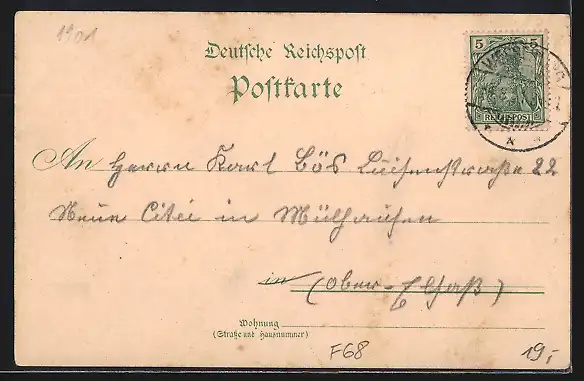 1901
Deutsche Reichspost
Postkarte
5
REICHSPOST
An Herrn Karl Bös Luisenstraße 22
Neue Citei in Mülhausen
in (Ober-Elsaß)
Wohnung
(Straße und Hausnummer)
F68
19,-